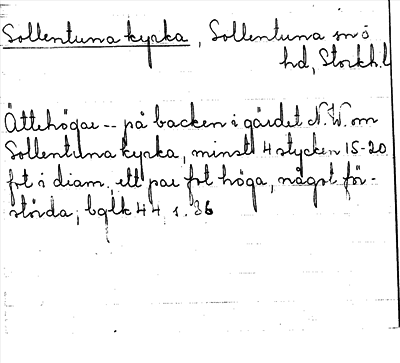 Sollentuna kyrka, Sollentuna sn ö
hd, Stockh. l
Ättehögar -- på backen i gärdet N.W. om
Sollentuna kyrka, minst 4 stycken 15-20
fot i diam. ett par fot höga, något för-
störda; bglk 44, s. 36